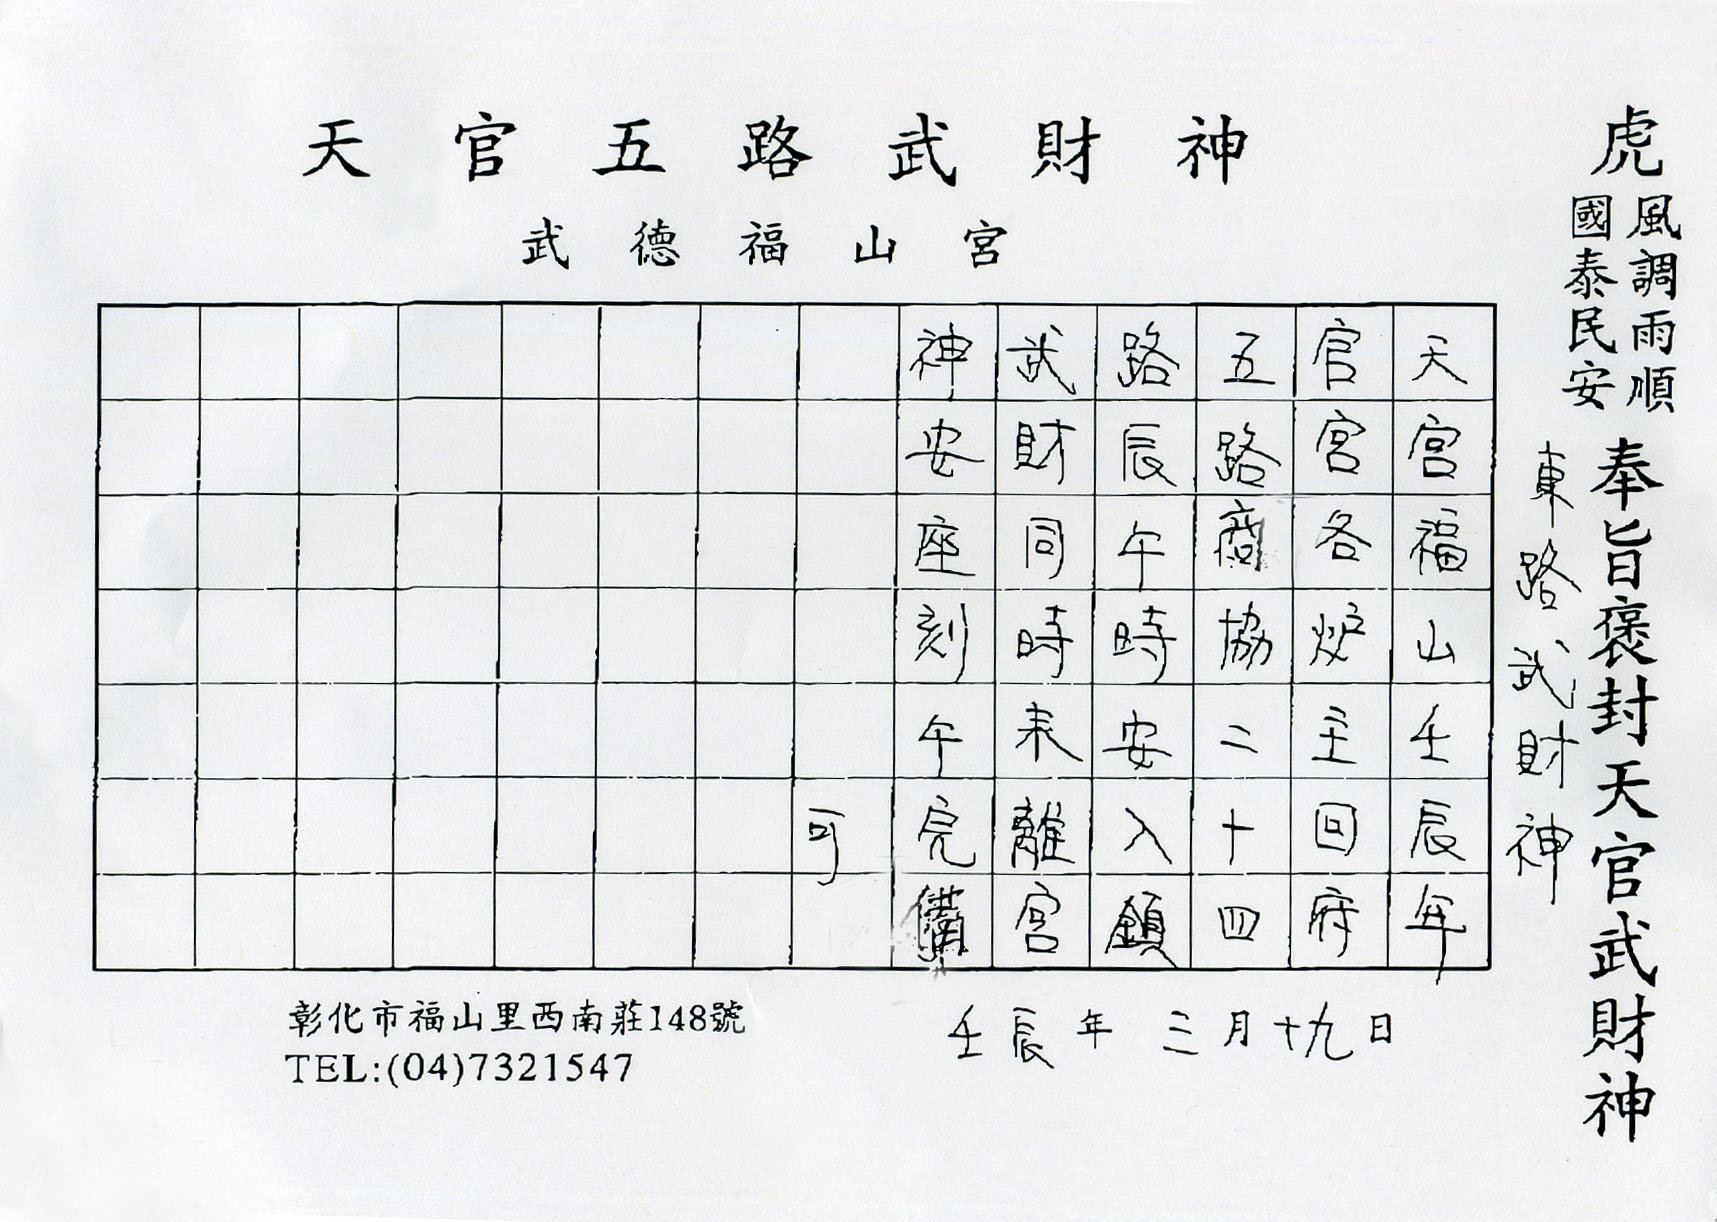 天官五路武財神
武德福山宮
虎
風調雨順
國泰民安
奉旨褒封天官武財神
東路武財神
天宮福山壬辰年
官宮各炉主回府
五路商協二十四
路辰午時安入鎮
武財同時未離宮
神安座刻午完備
可
壬辰年 三月十九日
彰化市福山里西南莊148號
TEL:(04)7321547